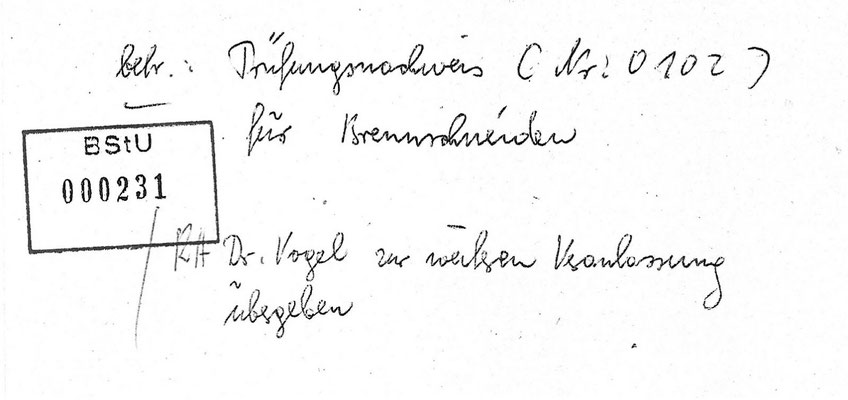 betr.: Prüfungsnachweis (Nr: 0102)
für Brennschneiden
BStU
000231
RA Dr. Vogel zur weiteren Veranlassung
übergeben